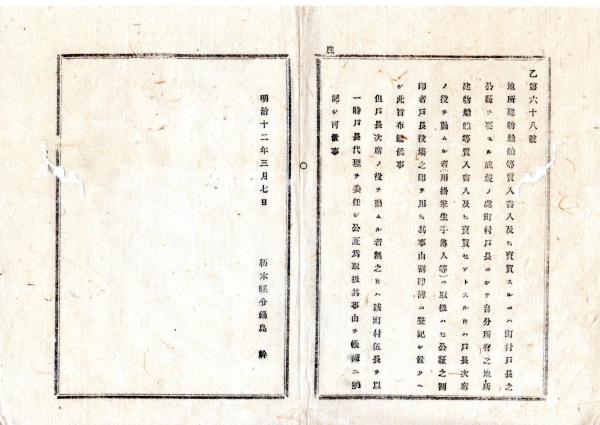 庶
乙第六十八號
地所建物船舶等質入書入及ヒ賣買スルニハ町村戸長之
公証ヲ要スル成規ノ處町村戸長ニシテ自分所有之地所
建物船舶等質入書入及ヒ賣買セントスル時ハ戸長次席
ノ役ヲ勤ムル者(用掛筆生手傳人等)ニ取扱ハセ公証之割
印者戸長役場之印ヲ用ヒ其事由割印簿ニ登記シ置クヘ
シ此旨布達候事
但戸長次席ノ役ヲ勤ムル者無之時ハ該町村伍長ヲ以
一時戸長代理ヲ委任シ公証為取扱其事由ヲ帳簿ニ
記シ可置事
明治十二年三月七日
栃木縣令鍋島 幹